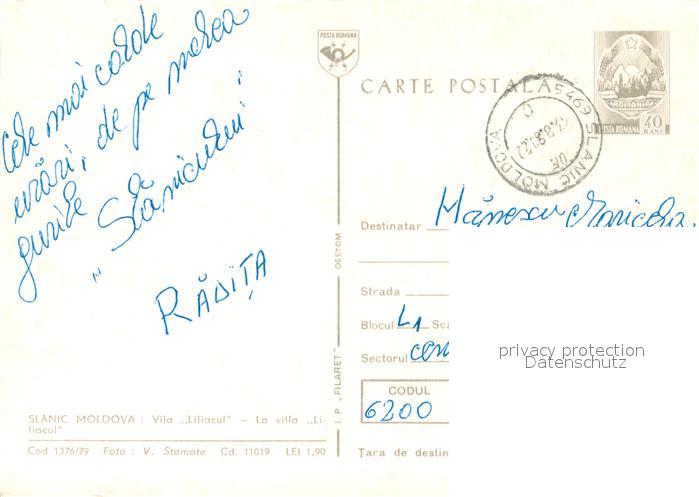 Cele mai calde
urări, de pe
gurile „Slănicului”
RĂDIȚA
SLĂNIC MOLDOVA : Vila „Liliacul” — La villa „Li-
liacul”
Cod 1376/79 Foto : V. Stamate Cd. 11019 LEI 1,90
I. P. „FILARET”
OSETCM
POSTA ROMANA
CARTE POSTALA
ROMANIA
POSTA ROMANA
40
BANI
5469 SLANIC MOLDOVA
Destinatar Mănescu Maricela
Strada
Blocul L1 Sca
Sectorul
CODUL
6200
Țara de destin
privacy protection
Datenschutz